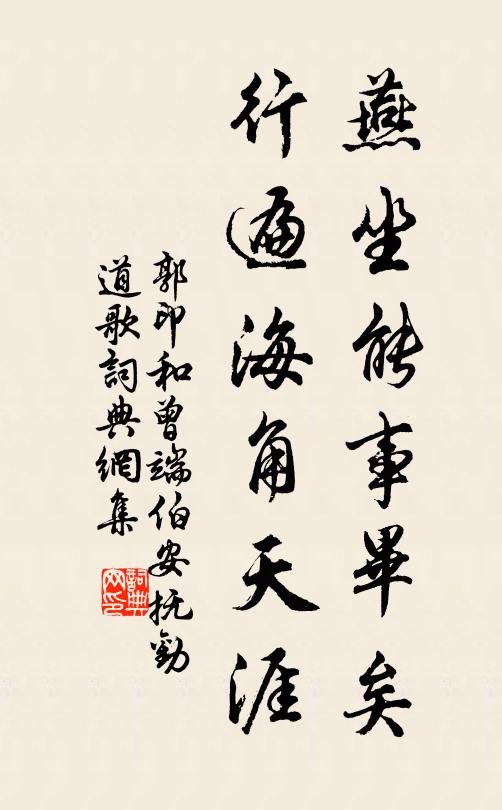 燕坐能事畢矣
行遍海角天涯
郭印和曾端伯安抚勸
道歌詞典網集
詞典
网印